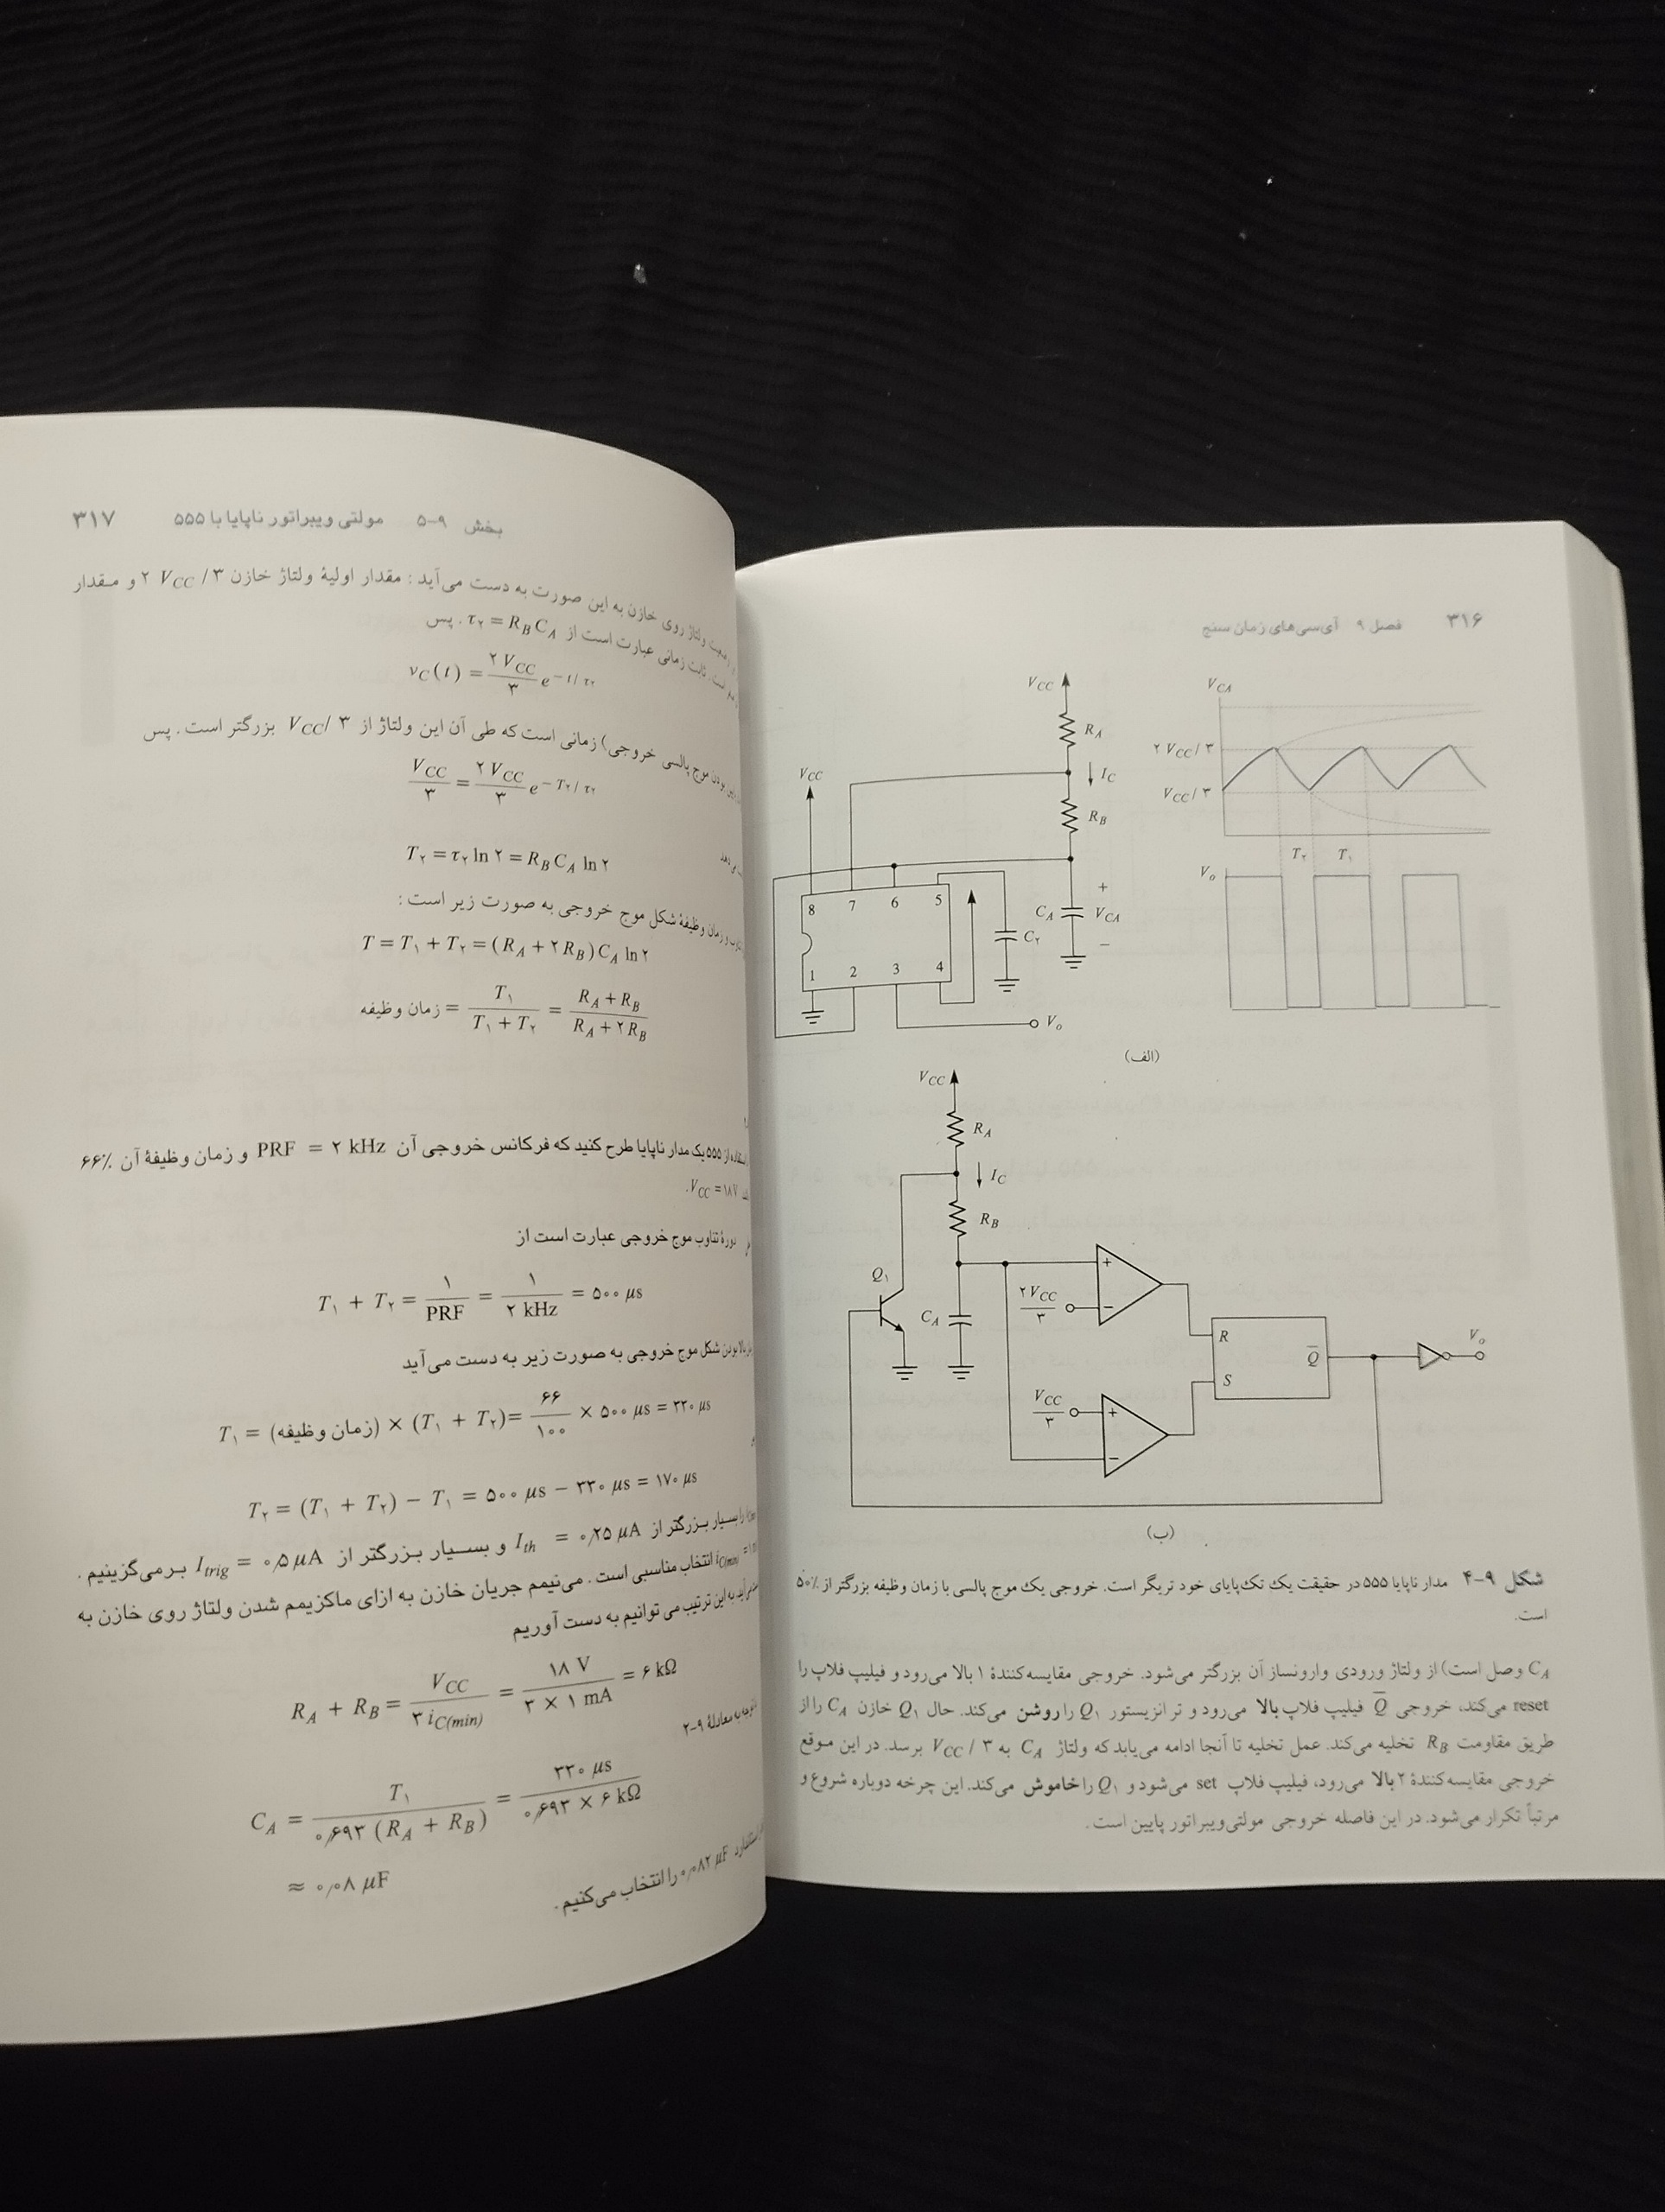 ۳۱۶ فصل ۹ آی‌سی‌های زمان سنج
V_CC
R_A
I_C
R_B
V_CC
8 7 6 5
1 2 3 4
C_۲
C_A
+
V_CA
−
V_o
V_CA
۲ V_CC / ۳
V_CC / ۳
T_۲ T_۱
V_o
(الف)
V_CC
R_A
I_C
R_B
Q_۱
C_A
۲ V_CC / ۳
+
−
V_CC / ۳
+
−
R
S
Q̅
V_o
(ب)
شکل ۹–۴ مدار ناپایا ۵۵۵ در حقیقت یک تک‌پایای خود تریگر است. خروجی یک موج پالسی با زمان وظیفه بزرگتر از ۵۰٪
است.
C_A وصل است) از ولتاژ ورودی وارونساز آن بزرگتر می‌شود. خروجی مقایسه‌کنندهٔ ۱ بالا می‌رود و فیلیپ فلاپ را
reset می‌کند، خروجی Q̅ فیلیپ فلاپ بالا می‌رود و ترانزیستور Q_۱ را روشن می‌کند. حال Q_۱ خازن C_A را از
طریق مقاومت R_B تخلیه می‌کند. عمل تخلیه تا آنجا ادامه می‌یابد که ولتاژ C_A به V_CC / ۳ برسد. در این موقع
خروجی مقایسه‌کنندهٔ ۲ بالا می‌رود، فیلیپ فلاپ set می‌شود و Q_۱ را خاموش می‌کند. این چرخه دوباره شروع و
مرتباً تکرار می‌شود. در این فاصله خروجی مولتی‌ویبراتور پایین است.
بخش ۹–۵ مولتی ویبراتور ناپایا با ۵۵۵ ۳۱۷
ولتاژ روی خازن به این صورت به دست می‌آید : مقدار اولیهٔ ولتاژ خازن ۲ V_CC / ۳ و مـقدار
است. ثابت زمانی عبارت است از τ_۲ = R_B C_A . پس
v_C(t) = (۲ V_CC / ۳) e^(−t / τ_۲)
بودن موج پالسی خروجی) زمانی است که طی آن این ولتاژ از V_CC / ۳ بزرگتر است . پس
V_CC / ۳ = (۲ V_CC / ۳) e^(−T_۲ / τ_۲)
T_۲ = τ_۲ ln ۲ = R_B C_A ln ۲
و زمان وظیفهٔ شکل موج خروجی به صورت زیر است :
T = T_۱ + T_۲ = (R_A + ۲ R_B) C_A ln ۲
زمان وظیفه = T_۱ / (T_۱ + T_۲) = (R_A + R_B) / (R_A + ۲ R_B)
از ۵۵۵ یک مدار ناپایا طرح کنید که فرکانس خروجی آن PRF = ۲ kHz و زمان وظیفهٔ آن ۶۶٪
V_CC = ۱۸ V.
دورهٔ تناوب موج خروجی عبارت است از
T_۱ + T_۲ = ۱ / PRF = ۱ / ۲ kHz = ۵۰۰ μs
بالا بودن شکل موج خروجی به صورت زیر به دست می‌آید
T_۱ = (زمان وظیفه) × (T_۱ + T_۲) = ۶۶ / ۱۰۰ × ۵۰۰ μs = ۳۳۰ μs
T_۲ = (T_۱ + T_۲) − T_۱ = ۵۰۰ μs − ۳۳۰ μs = ۱۷۰ μs
را بسـیار بـزرگتر از I_th = ۰٫۲۵ μA و بسـیار بـزرگتر از I_trig = ۰٫۵ μA بـرمی‌گزینیم .
i_C(min) انتخاب مناسبی است . می‌نیمم جریان خازن به ازای ماکزیمم شدن ولتاژ روی خازن به
به این ترتیب می توانیم به دست آوریم
R_A + R_B = V_CC / (۳ i_C(min)) = ۱۸ V / (۳ × ۱ mA) = ۶ kΩ
به معادلهٔ ۹–۲
C_A = T_۱ / (۰٫۶۹۳ (R_A + R_B)) = ۳۳۰ μs / (۰٫۶۹۳ × ۶ kΩ)
≈ ۰٫۰۸ μF
۰٫۰۸۲ μF را انتخاب می‌کنیم.